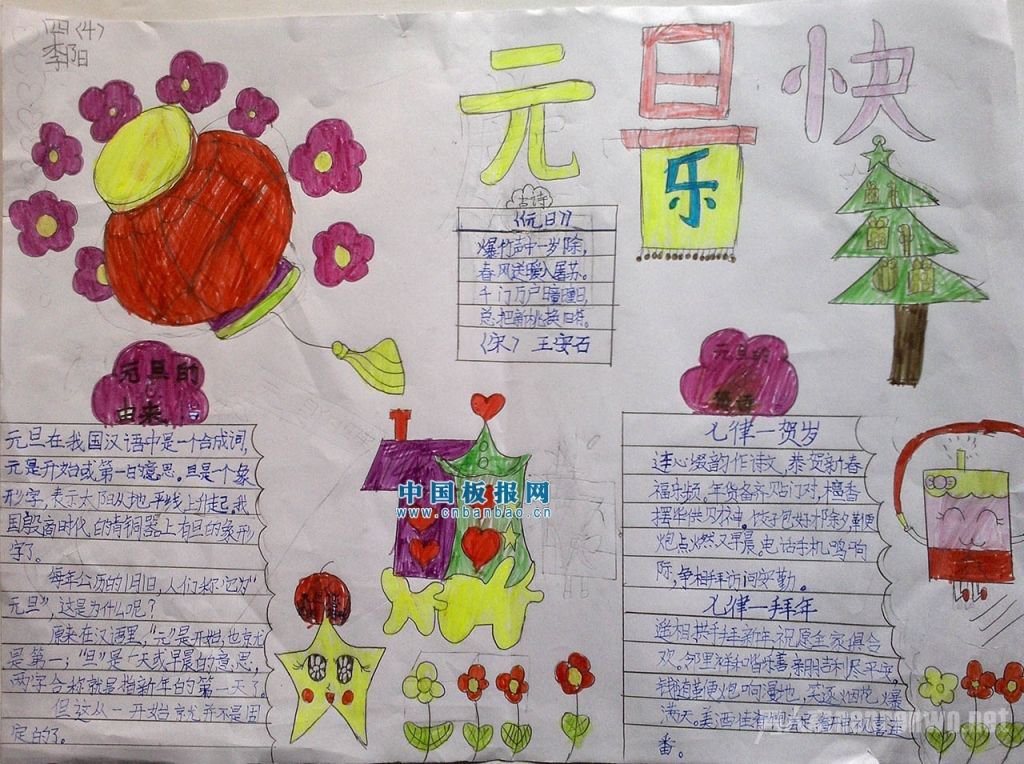 四(4)
李阳
元旦快
乐
古诗
《元日》
爆竹声中一岁除,
春风送暖入屠苏。
千门万户曈曈日,
总把新桃换旧符。
(宋) 王安石
元旦的
由来
元旦在我国汉语中是一个合成词,
元是开始或第一日意思。旦是一个象
形字,表示太阳从地平线上升起,我
国殷商时代的青铜器上有旦的象形
字了。
每年公历的1月1日,人们称它为“
元旦”,这是为什么呢?
原来在汉语里,“元”是开始,也就
是第一;“旦”是一天或早晨的意思,
两字合称就是指新年的第一天了。
但这从一开始就并不是固
定的了。
中国板报网
www.cnbanbao.cn
元旦的
七律一贺岁
连心缀韵作诗文,恭贺新春
福乐频。年货备齐贴门对,檀香
摆华供财神。饺子包好邻除夕鞭
炮点燃又早晨。电话手机鸣响
际,争相拜访问安勤。
七律一拜年
递相拱手拜新年,祝愿全家俱合
欢。邻里祥和皆乐善亲朋吉利尽平安。
钱道鞭炮响漫地,买逐烟花爆
满天。美酒佳肴
番。